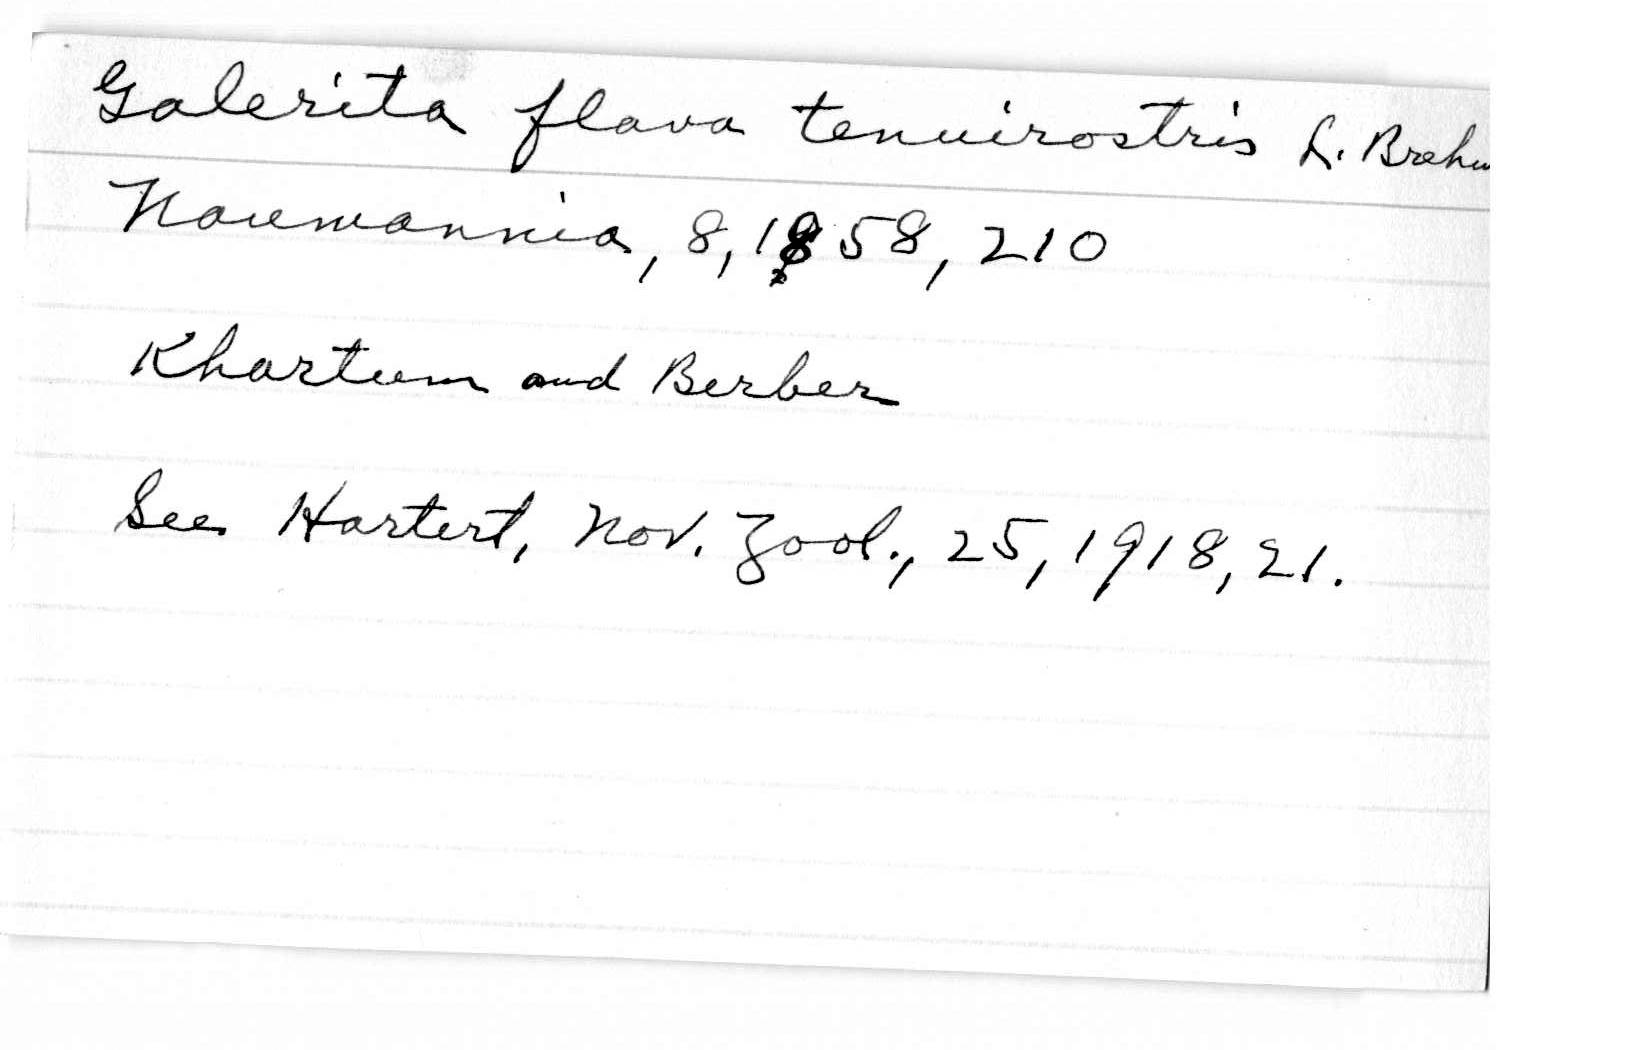 Galerita flava tenuirostris L. Brehm
Naumannia, 8, 1858, 210
Khartum and Berber
See Hartert, Nov. Zool., 25, 1918, 21.